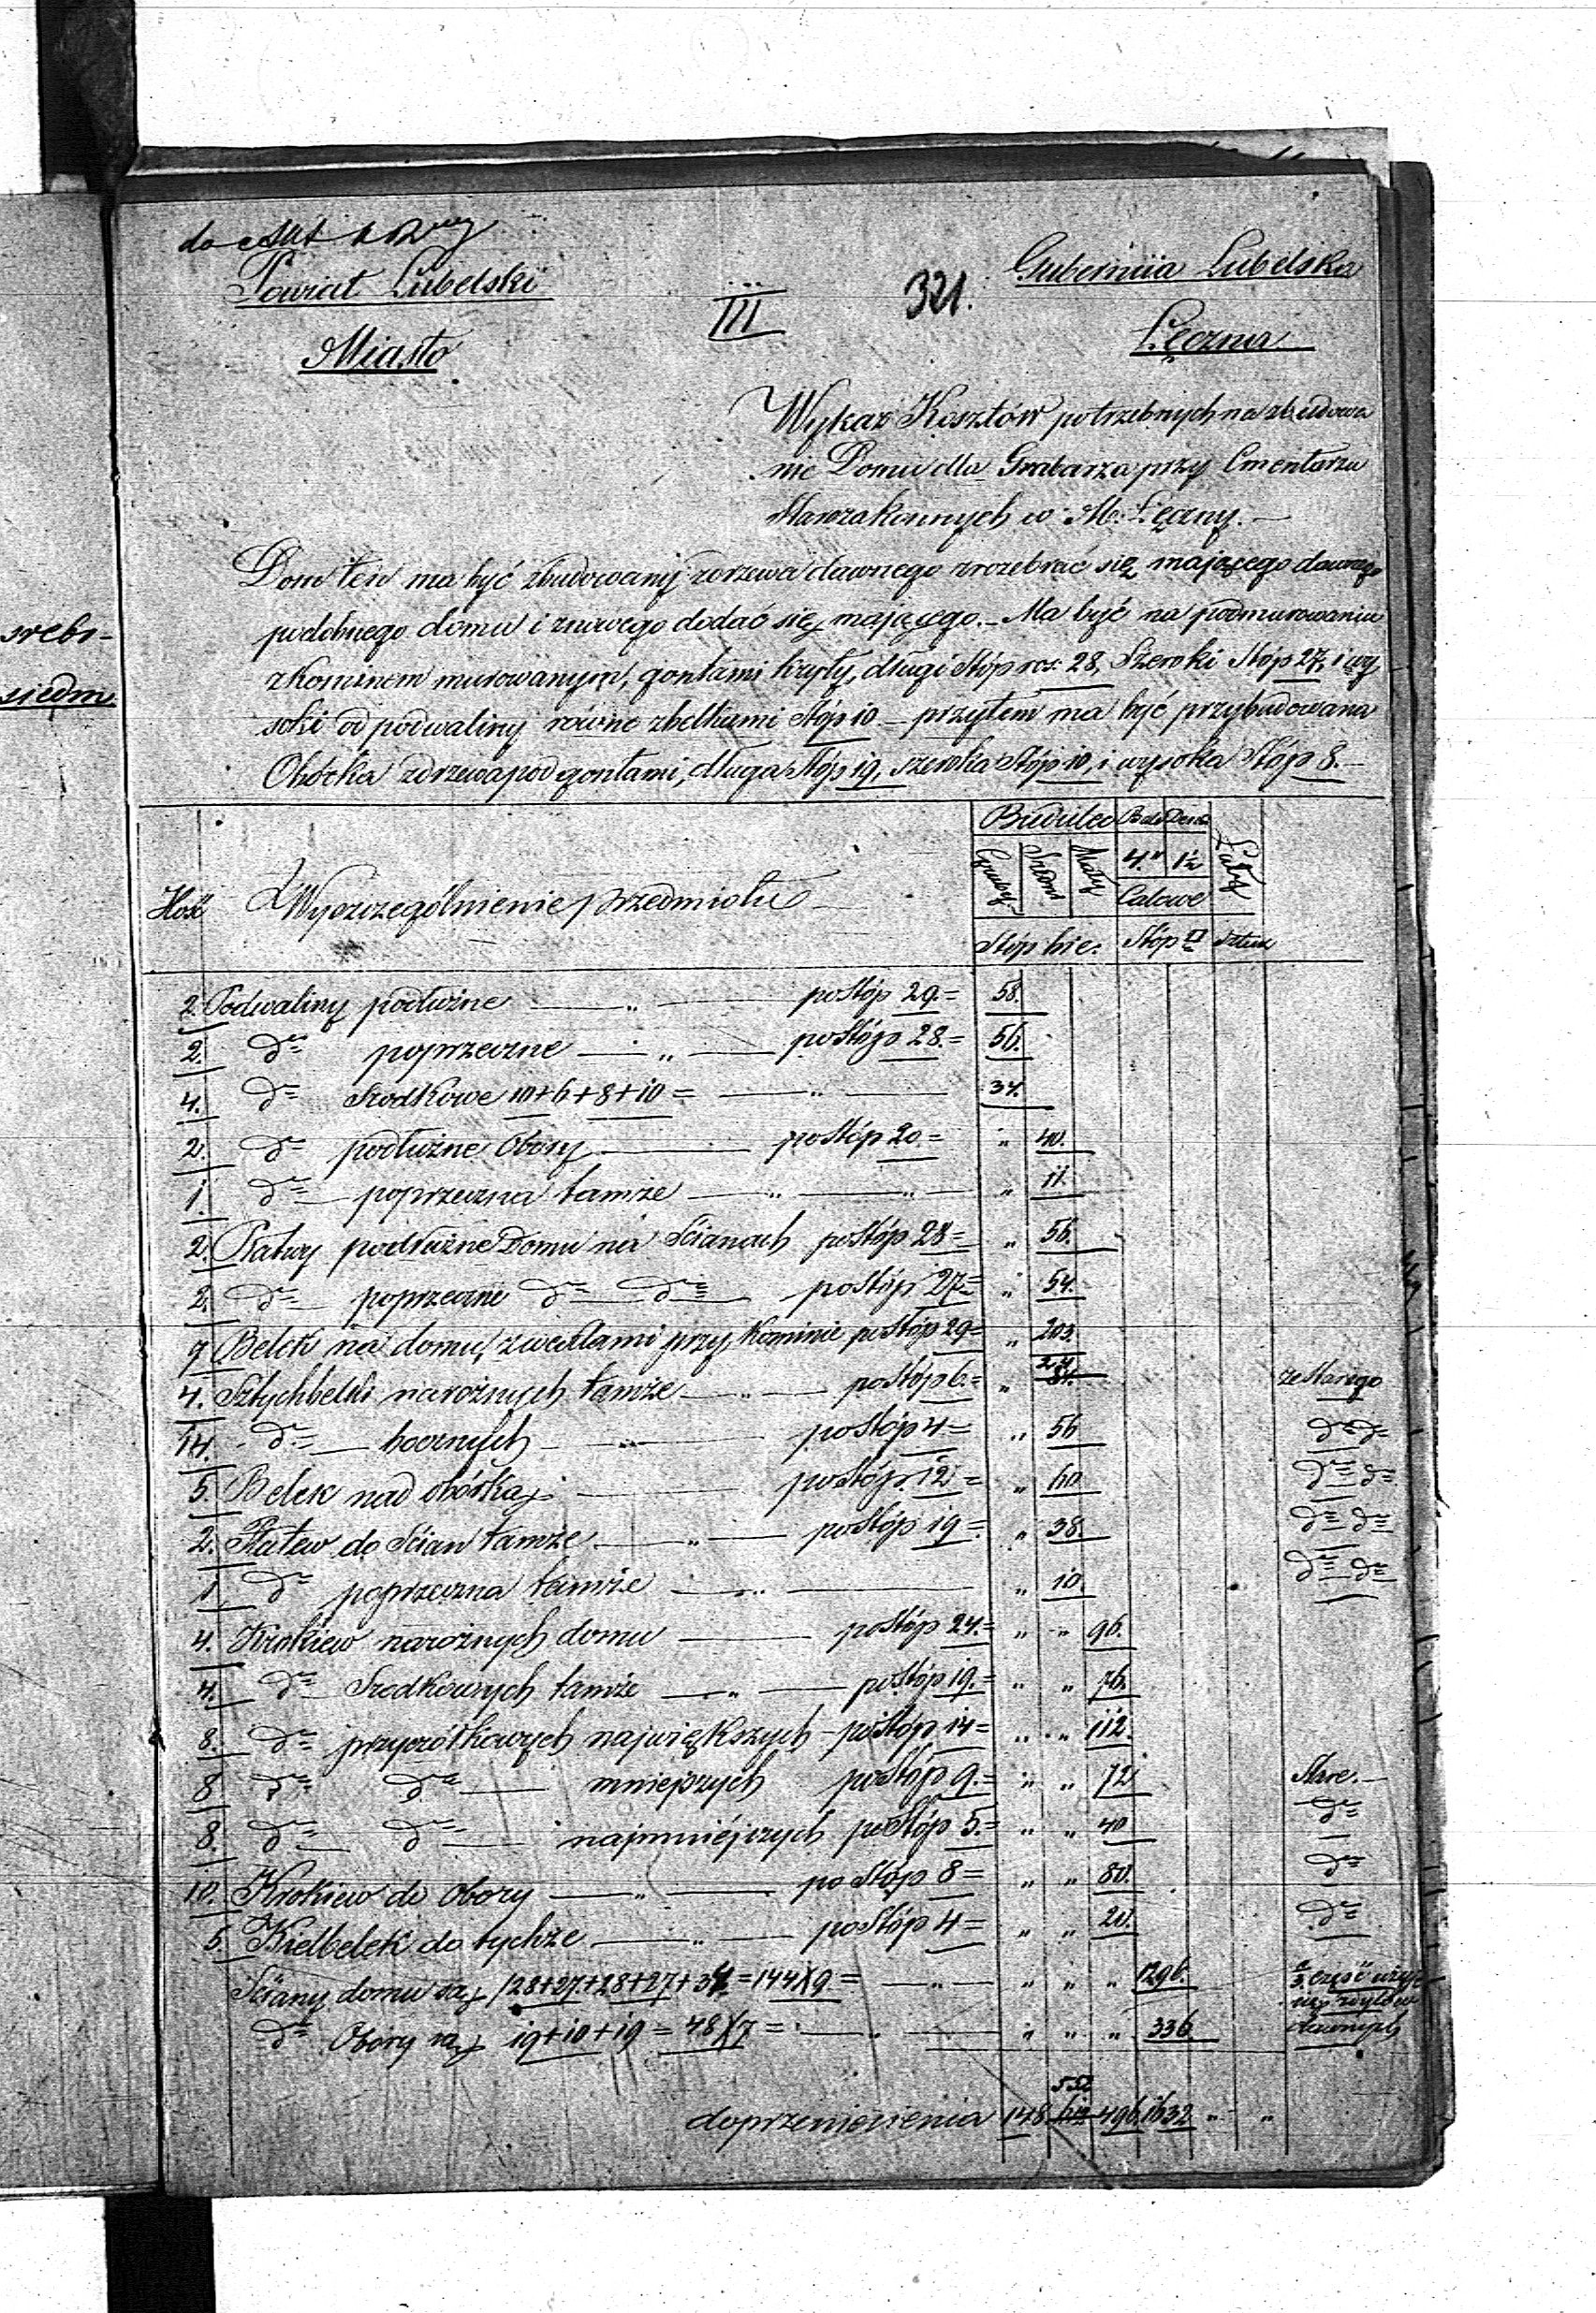 Powiat Lubelski
Gubernija Lubelska
III
321.
Miasto
Łęczna
Wykaz Kosztów potrzebnych na zbudowa
nie Domu dla Grabarza przy Cmentarzu
Starozakonnych w M. Łęczny.
Dom ten ma być zbudowany z drzewa dawnego rozebrać się mającego dawnego
podobnego domu i z nowego dodać się mającego. – Ma być na podmurowaniu
z Kominem murowanym, gontami kryty, długi Stóp ros: 28, Szeroki Stóp 27, i wy
soki od podwaliny równo z belkami Stóp 10 – przytem ma być przybudowana
Obórka z drzewa pod gontami, długa Stóp 19, szeroka Stóp 10, i wysoka Stóp 8. –
Ilość Wyszczególnienie przedmiotu Budulec Bale Desek Łaty
Gruby Średni Mały 4." 1½
Calowe
Stóp bie: Stóp □ sztuk
2. Podwaliny podłużne — „ — po Stóp 29 = 58.
2. dto poprzeczne — „ — po Stóp 28. = 56.
4. dto Srodkowe 10+6+8+10 = — „ — 34.
2. dto podłużne Obory — po Stóp 20 = „ 40.
1. dto poprzeczna tamże — „ — „ — „ 11.
2. Płatwy podłużne Domu na Scianach po Stóp 28 = „ 56.
2. dto poprzeczne dto dto po Stóp 27 = „ 54.
7 Belek na domu, z wexlami przy Kominie po Stóp 29 = „ 203.
4. Sztychbelki narożnych tamże — „ — po Stóp 6. = „ 24 ze Starego
14. dto bocznych — „ — po Stóp 4 = „ 56 dto dto
5. Belek nad obórką — po Stóp. 12 = „ 60 dto dto
2. Płatew do Scian tamże — „ — po Stóp 19 = „ 38. dto dto
1 dto poprzeczna tamże — „ — „ 10. dto dto
4. Krokiew narożnych domu — po Stóp 24. = „ „ 96.
4. dto Srodkowych tamże — „ — po Stóp 19. = „ „ 76.
8. dto przyczółkowych największych – po Stóp 14 = „ „ 112.
8 dto dto — mniejszych po Stóp 9. = „ „ 72 Stare. –
8. dto dto — najmniéjszych po Stóp 5. = „ „ 40 dto
10. Krokiew do Obory — „ — po Stóp 8 = „ „ 80. dto
5. Kielbelek do tychże — „ — po Stóp 4 = „ „ 20. dto
Sciany domu są 28+27+28+27+34 = 144 X 9 = — „ — „ „ „ 1296.
dto Obory są 19+10+19 = 48 X 7 = — „ — „ „ „ 336. dawnych
do przeniesienia 148. 552 496. 1632 „ „
srebr-
siedm